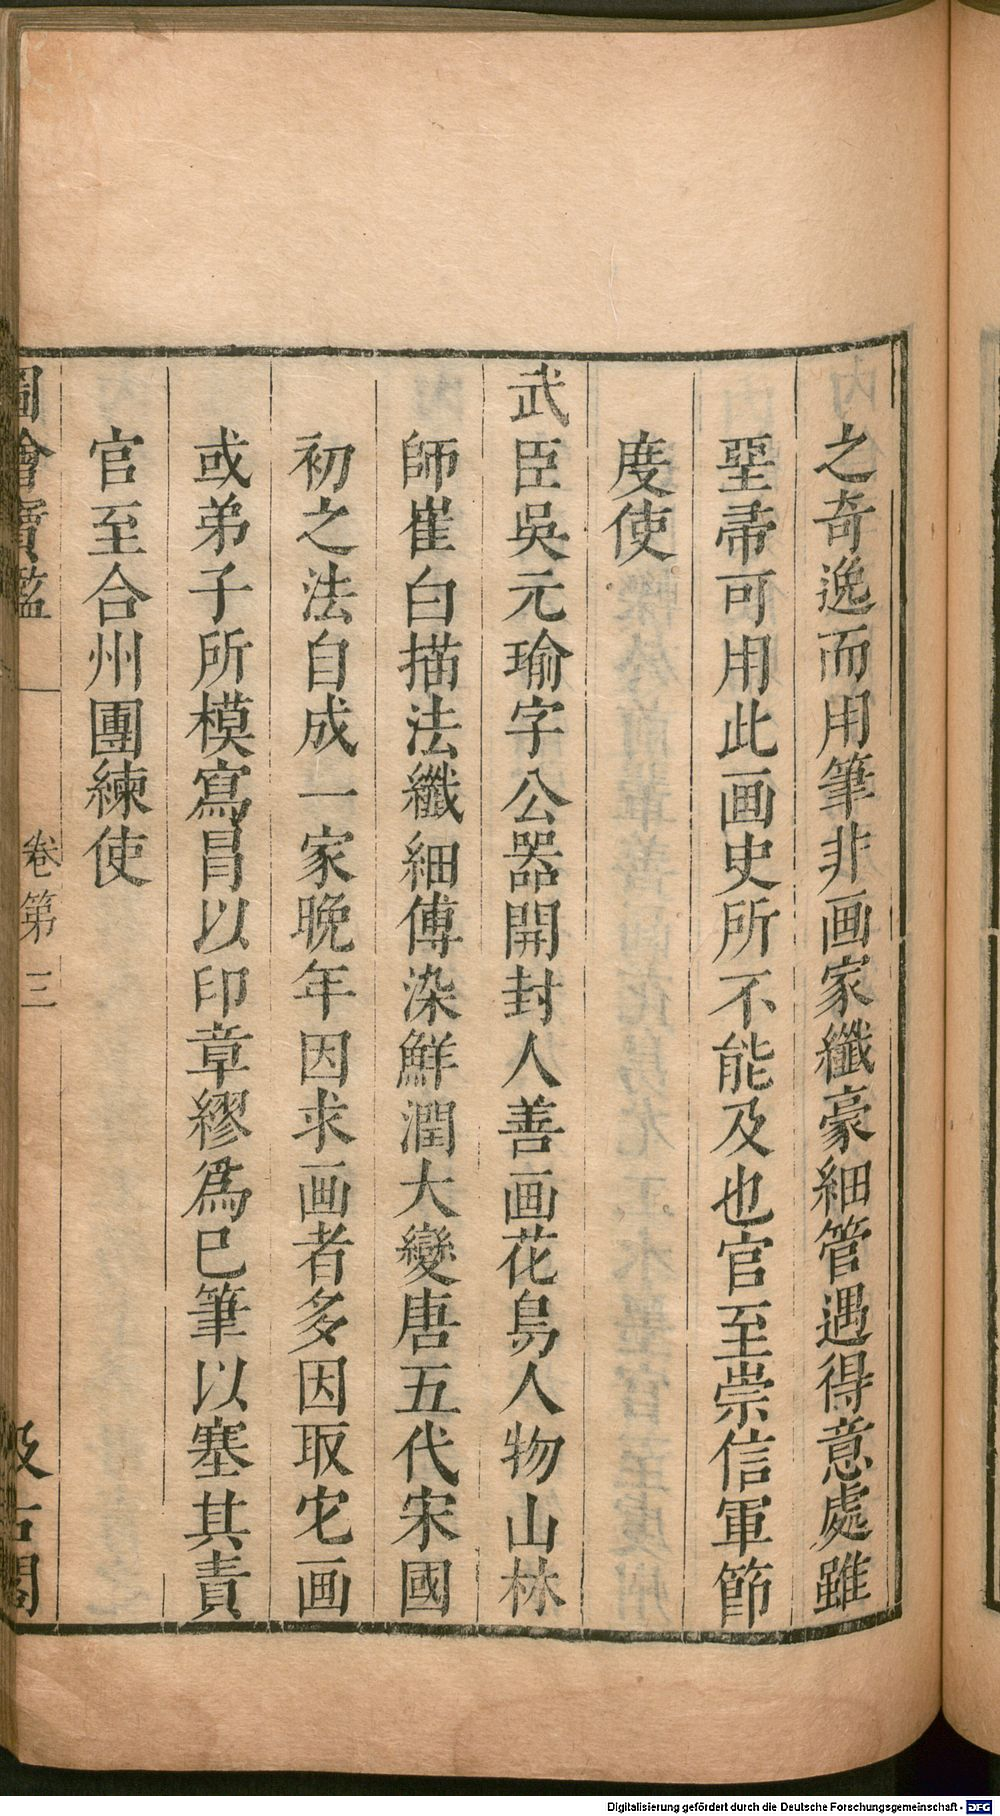 之奇逸而用筆非画家纖豪細管遇得意處雖
堊帚可用此画史所不能及也官至崇信軍節
度使
武臣吳元瑜字公器開封人善画花鳥人物山林
師崔白描法纖細傅染鮮潤大變唐五代宋國
初之法自成一家晚年因求画者多因取它画
或弟子所模寫昌以印章繆爲已筆以塞其責
官至合州團練使
圖繪寶鑑
卷第三
汲古閣
Digitalisierung gefördert durch die Deutsche Forschungsgemeinschaft - DFG